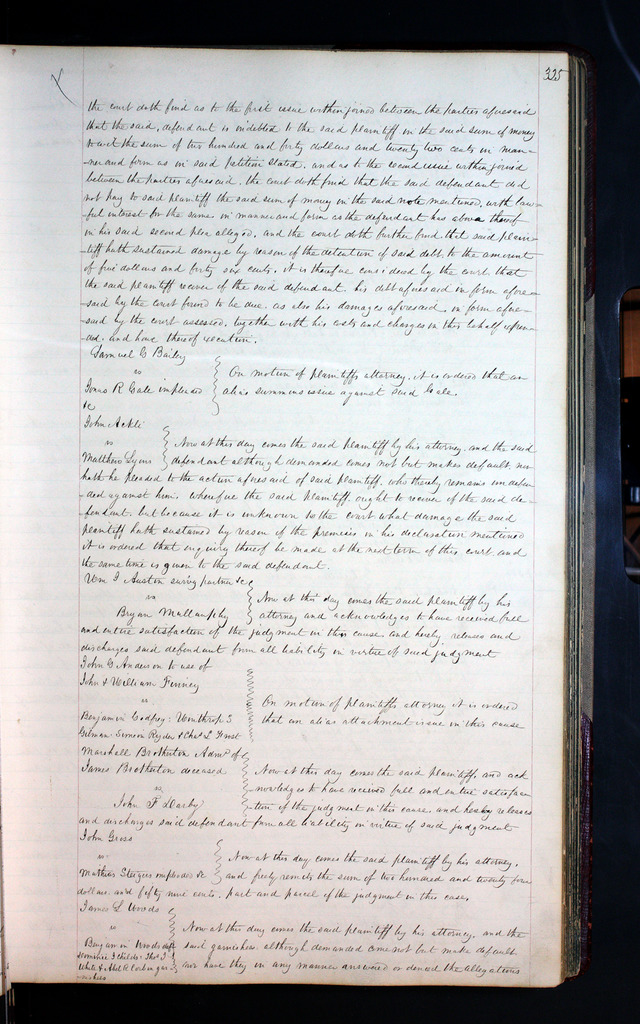 325
the court doth find as to the first issue within joined between the parties aforesaid
that the said defendant is indebted to the said plaintiff in the said sum of money
to wit the sum of two hundred and forty dollars and twenty two cents in man-
-ner and form as in said petition stated, and as to the second issue within joined
between the parties aforesaid, the court doth find that the said defendant did
not pay to said plaintiff the said sum of money in the said note mentioned, with law-
-ful interest for the same in manner and form as the defendant has above thereof
in his said second plea alleged, and the court doth further find that said plain-
-tiff hath sustained damage by reason of the detention of said debt to the amount
of five dollars and forty six cents. it is therefore considered by the court that
the said plaintiff recover of the said defendant his debt aforesaid in form afore-
-said by the court found to be due, as also his damages aforesaid in form afore-
-said by the court assessed, together with his costs and charges in this behalf expen-
-ded, and have thereof execution.
Samuel C Bailey
vs
Jonas R Gale impleaded
&c
On motion of plaintiffs attorney, it is ordered that an
alias summons issue against said Gale.
John Ackli
vs
Matthew Lyons
Now at this day comes the said plaintiff by his attorney, and the said
defendant although demanded comes not but makes default, nor
hath he pleaded to the action aforesaid of said plaintiff, who thereby remains undefen-
ded against him. wherefore the said plaintiff ought to recover of the said de-
-fendant. but because it is unknown to the court what damage the said
plaintiff hath sustained by reason of the premises in his declaration mentioned
it is ordered that enquiry thereof be made at the next term of this court and
the same time is given to the said defendant.
Wm I Austin surving partner &c
vs
Bryan Mullanphy
Now at this day comes the said plaintiff by his
attorney and acknowledges to have received full
and entire satisfaction of the judgment in this cause and hereby releases and
discharges said defendant from all liability in virtue of said judgment
John G Anderson to use of
John & William Finney
vs
Benjamin Godfrey, Winthrop S
Gilman, Simeon Ryder & Chas L Frost
On motion of plaintiffs attorney it is ordered
that an alias attachment issue in this cause
Marshall Brotherton Admr of
James Brotherton deceased
vs
John F Darby
Now at this day comes the said plaintiff, and ack
nowledges to have received full and entire satisfac-
tion of the judgment in this cause, and hereby releases
and discharges said defendant from all liability in virtue of said judgment
John Gross
vs
Mathias Steigers impleaded &c
Now at this day comes the said plaintiff by his attorney,
and freely remits the sum of two hundred and twenty four
dollars and fifty nine cents, part and parcel of the judgment in this case.
James L Woods
vs
Benjamin Woods deft
Childs Thos J
White & Abel R Corbin gar-
-nishees
Now at this day comes the said plaintiff by his attorney, and the
said garnishees although demanded come not but make default
nor have they in any manner answered or denied the allegations